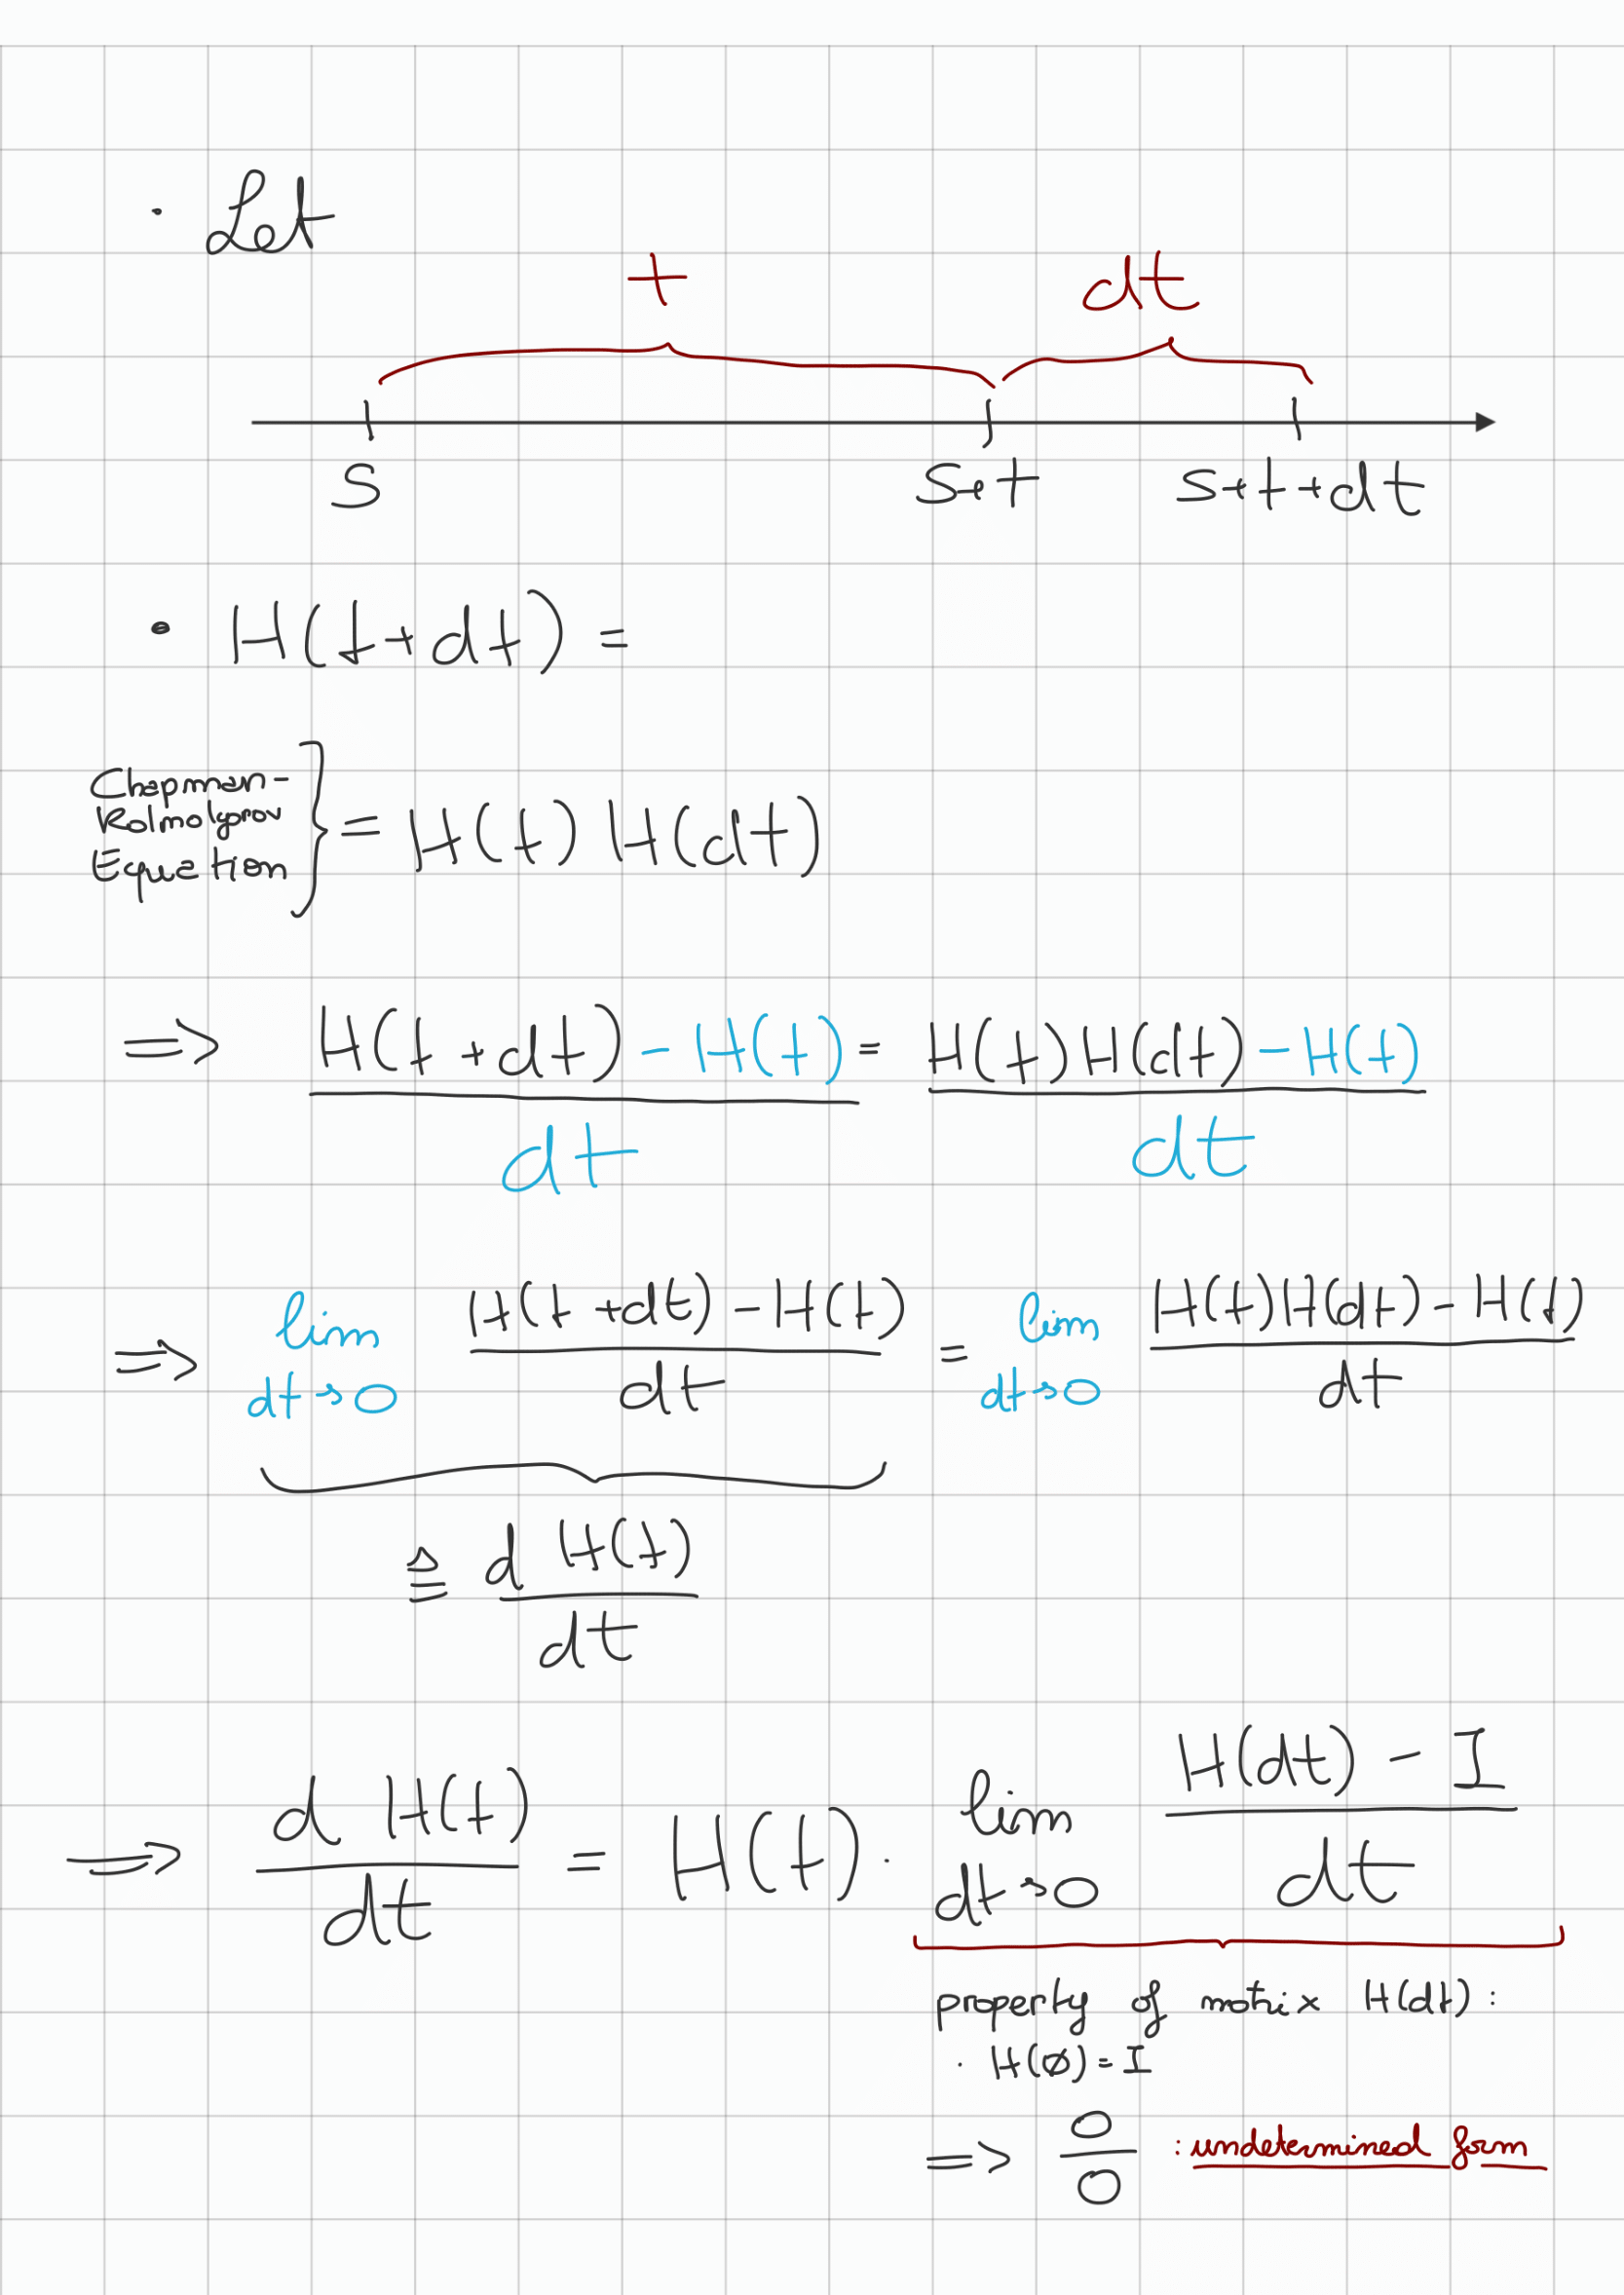 · Let
t dt
s s+t s+t+dt
• H(t+dt) =
Chapman-
Kolmogorov
Equation } = H(t) H(dt)
⇒ H(t+dt) - H(t) = H(t)H(dt) - H(t)
dt dt
⇒ lim H(t+dt) - H(t) = lim H(t)H(dt) - H(t)
dt→0 dt dt→0 dt
≜ d H(t)
dt
⇒ d H(t) = H(t) · lim H(dt) - I
dt dt→0 dt
property of matrix H(dt) :
· H(∅) = I
=> 0/0 : undetermined form